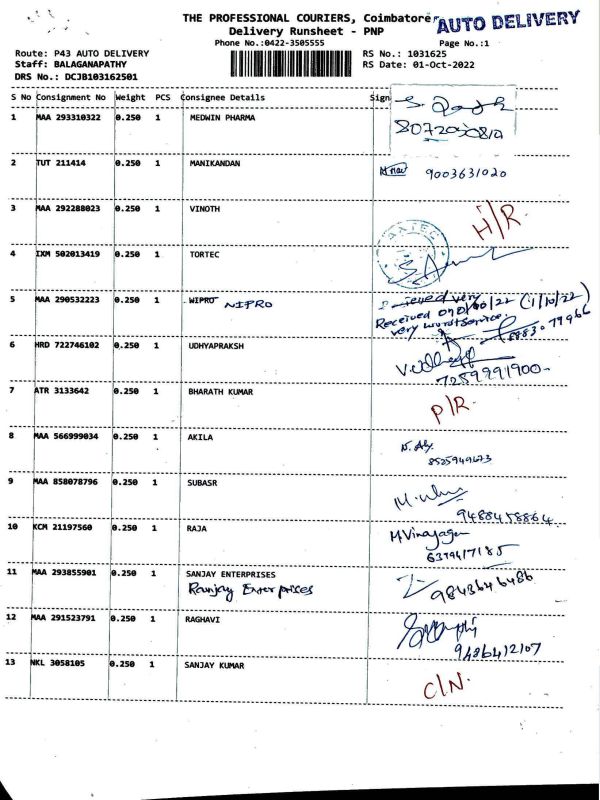 THE PROFESSIONAL COURIERS, Coimbatore
AUTO DELIVERY
Delivery Runsheet - PNP
Phone No.:0422-3505555
Page No.:1
Route: P43 AUTO DELIVERY
RS No.: 1031625
Staff: BALAGANAPATHY
RS Date: 01-Oct-2022
DRS No.: DCJB103162501
S No Consignment No Weight PCS Consignee Details Sign
1 MAA 293310322 0.250 1 MEDWIN PHARMA
2 TUT 211414 0.250 1 MANIKANDAN 9003631020
3 MAA 292288023 0.250 1 VINOTH H/R
4 IXM 502013419 0.250 1 TORTEC
5 MAA 290532223 0.250 1 WIPRO NIPRO
Received on (1/10/22)
very worst service.
6 HRD 722746102 0.250 1 UDHYAPRAKSH
7259991900
7 ATR 3133642 0.250 1 BHARATH KUMAR P/R.
8 MAA 566999034 0.250 1 AKILA
8525949673
9 MAA 858078796 0.250 1 SUBASR
9488458864
10 KCM 21197560 0.250 1 RAJA M.Vinayagam
6379417185
11 MAA 293855901 0.250 1 SANJAY ENTERPRISES
Ranjay Enterprises 9843646486
12 MAA 291523791 0.250 1 RAGHAVI
9486412107
13 NKL 3058105 0.250 1 SANJAY KUMAR C/N.